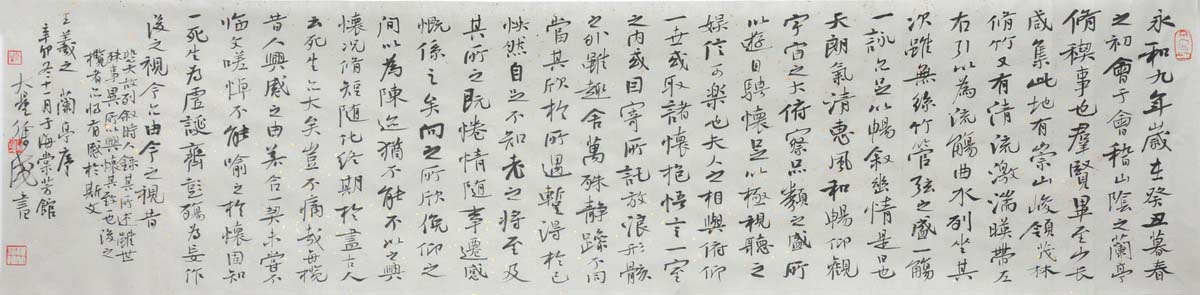 永和九年歲在癸丑暮春
之初會于會稽山陰之蘭亭
脩稧事也羣賢畢至少長
咸集此地有崇山峻領茂林
脩竹又有清流激湍暎帶左
右引以為流觴曲水列坐其
次雖無絲竹管弦之盛一觴
一詠亦足以暢敘幽情是日也
天朗氣清惠風和暢仰觀
宇宙之大俯察品類之盛所
以遊目騁懷足以極視聽之
娛信可樂也夫人之相與俯仰
一世或取諸懷抱悟言一室
之內或因寄所託放浪形骸
之外雖趣舍萬殊靜躁不同
當其欣於所遇暫得於己
怏然自足不知老之將至及
其所之既惓情隨事遷感
慨係之矣向之所欣俛仰之
間以為陳迹猶不能不以之興
懷況脩短隨化終期於盡古人
云死生亦大矣豈不痛哉每攬
昔人興感之由若合一契未嘗不
臨文嗟悼不能喻之於懷固知
一死生為虛誕齊彭殤為妄作
後之視今亦由今之視昔
悲夫故列敘時人錄其所述雖世
殊事異所以興懷其致一也後之
攬者亦將有感於斯文
王羲之 蘭亭序
辛卯冬十一月于海棠芳館
大 成書